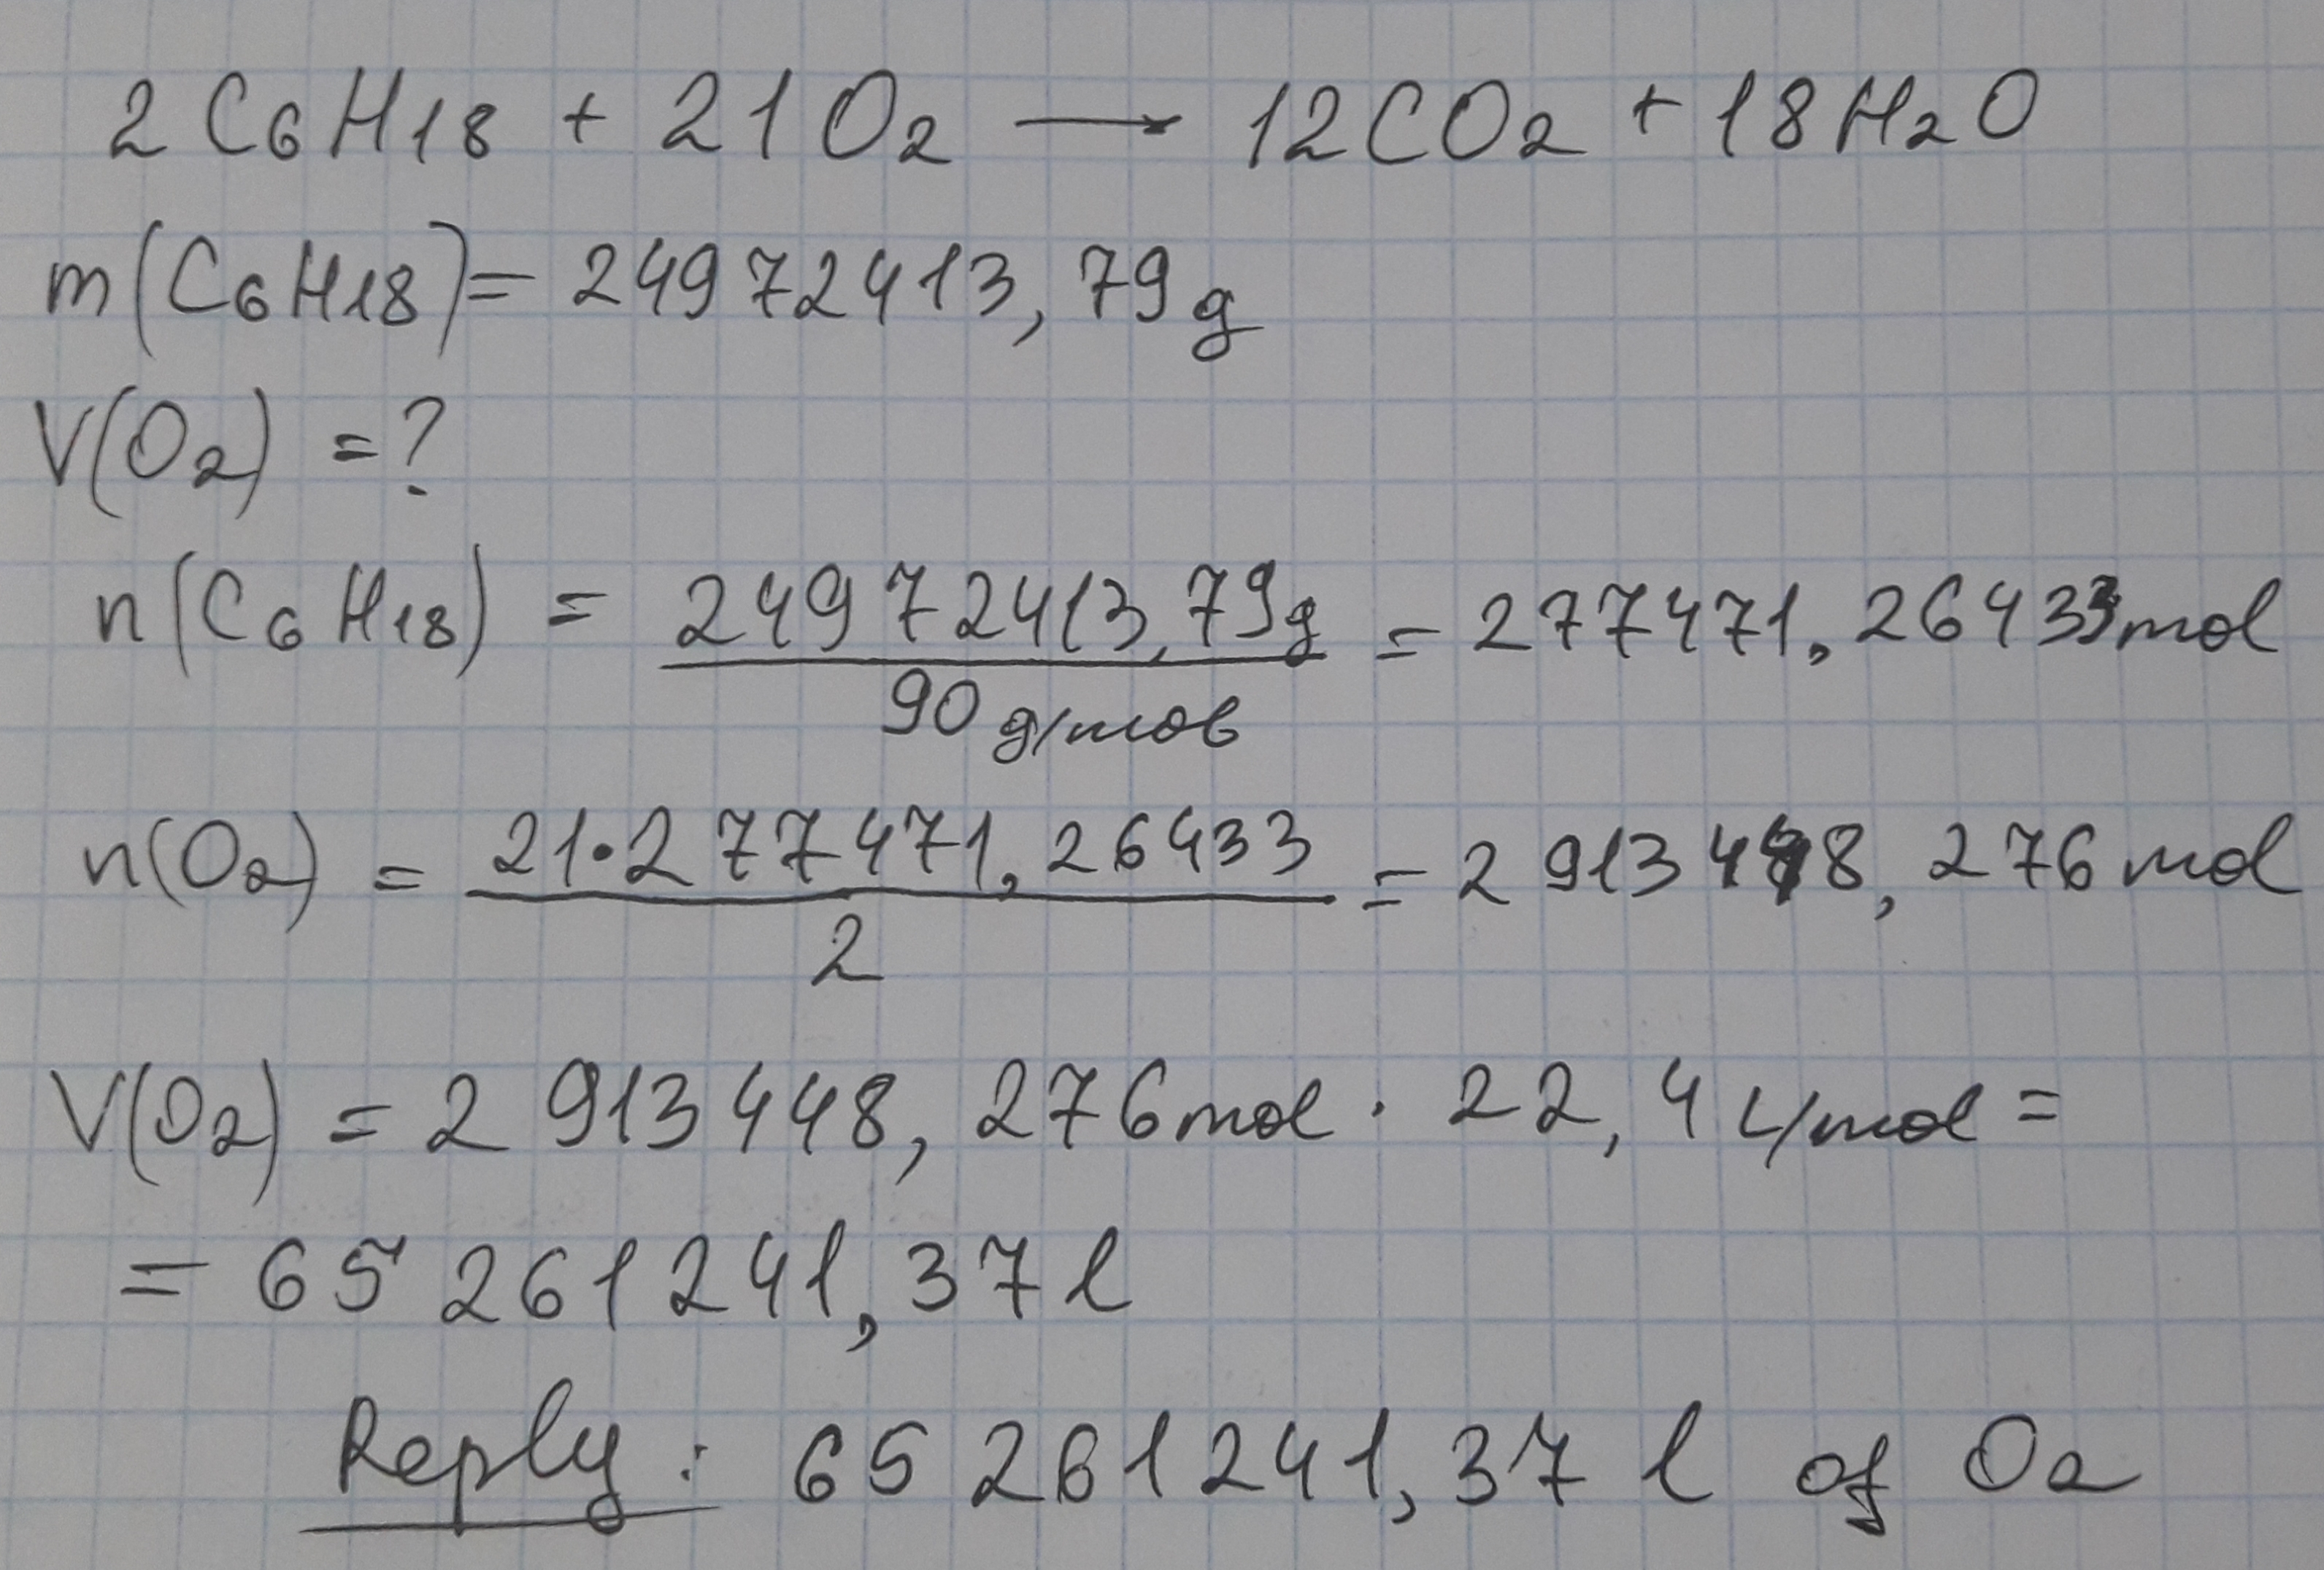 2 C₆H₁₈ + 21 O₂ → 12CO₂ + 18H₂O
m(C₆H₁₈) = 24972413,79 g
V(O₂) = ?
n(C₆H₁₈) = 24972413,79g / 90 g/моль = 277471,26433 mol
n(O₂) = 21·277471,26433 / 2 = 2 913448,276 mol
V(O₂) = 2 913448,276 mol · 22,4 L/mol =
= 65 261 241,37 l
Reply: 65 261 241,37 l of O₂